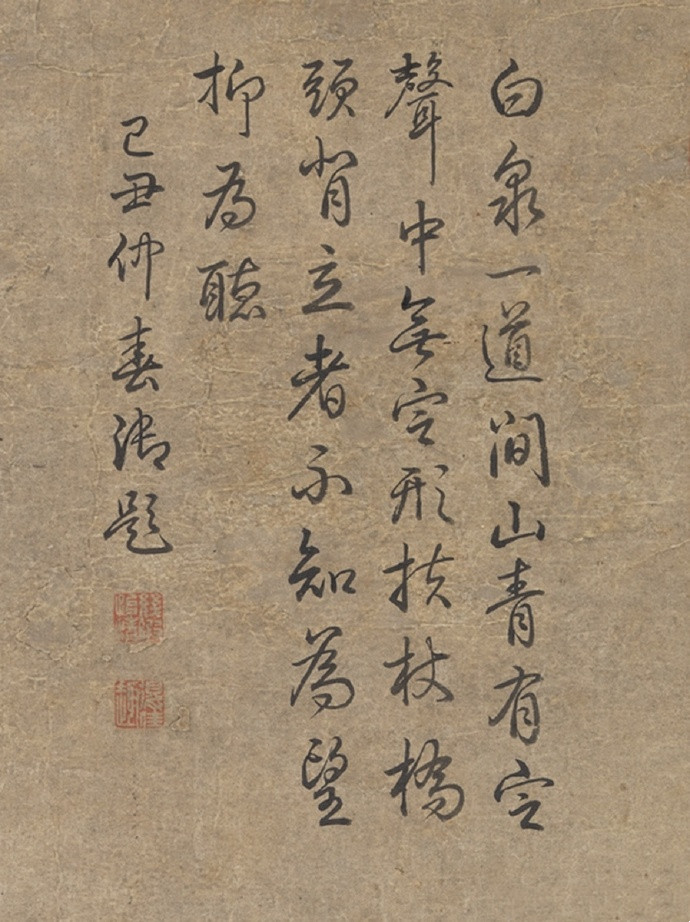 白泉一道間山青有定
聲中無定形扶杖橋
頭背立者不知為望
抑為聽
己丑仲春御題